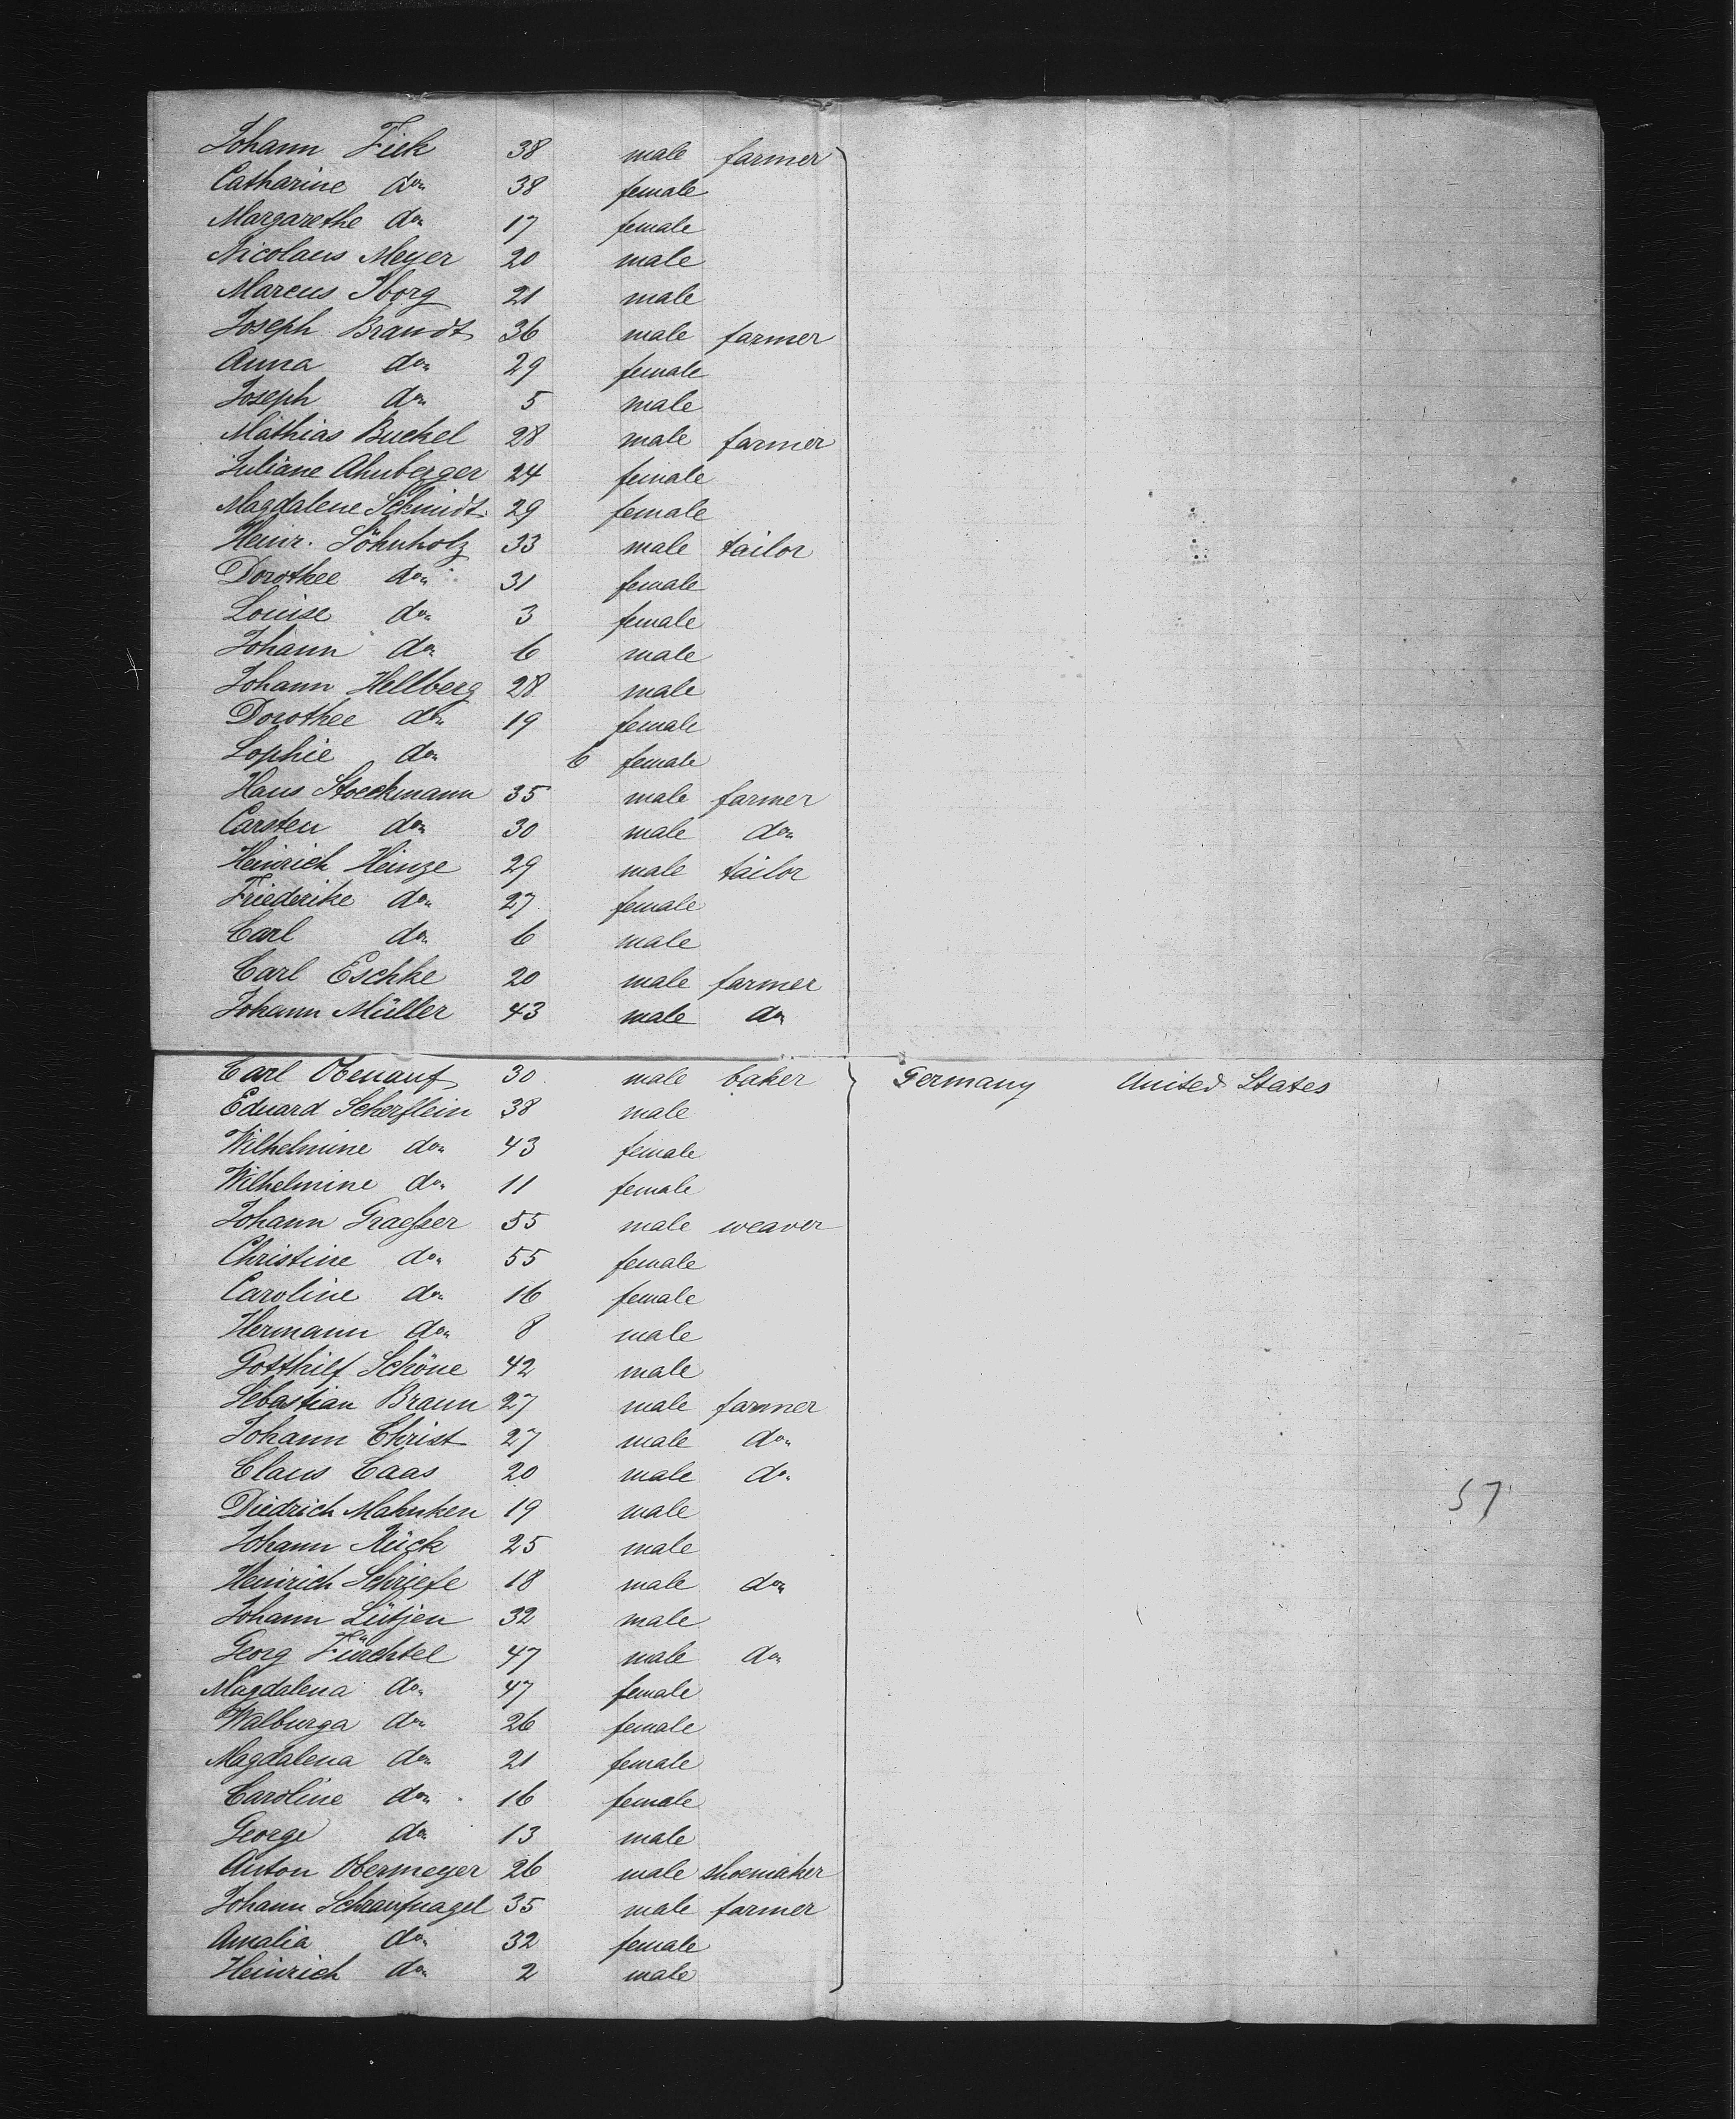 Johann Fick 38 male farmer
Catharine do 38 female
Margarethe do 17 female
Nicolaus Meyer 20 male
Marcus Iborg 21 male
Joseph Brandt 36 male farmer
Anna do 29 female
Joseph do 5 male
Mathias Buckel 28 male farmer
Juliane Ahnberger 24 female
Magdalene Schmidt 29 female
Heinr. Söhnholz 33 male tailor
Dorothee do 31 female
Louise do 3 female
Johann do 6 male
Johann Hellberg 28 male
Dorothee do 19 female
Sophie do 6 female
Hans Stoeckmann 35 male farmer
Carsten do 30 male do
Heinrich Heinze 29 male tailor
Friederike do 27 female
Carl do 6 male
Carl Eschke 20 male farmer
Johann Müller 43 male do
Carl Obenauf 30 male baker Germany United States
Eduard Scherflein 38 male
Wilhelmine do 43 female
Wilhelmine do 11 female
Johann Graesser 55 male weaver
Christine do 55 female
Caroline do 16 female
Hermann do 8 male
Gotthilf Schöne 42 male
Sebastian Braun 27 male farmer
Johann Christ 27 male do
Claus Caas 20 male do
57
Diedrich Mahnken 19 male
Johann Rück 25 male
Heinrich Schriefe 18 male do
Johann Lütjen 32 male
Georg Fürchtel 47 male do
Magdalena do 47 female
Walburga do 26 female
Magdalena do 21 female
Caroline do 16 female
George do 13 male
Anton Obermeyer 26 male shoemaker
Johann Schraufnagel 35 male farmer
Amalia do 32 female
Heinrich do 2 male